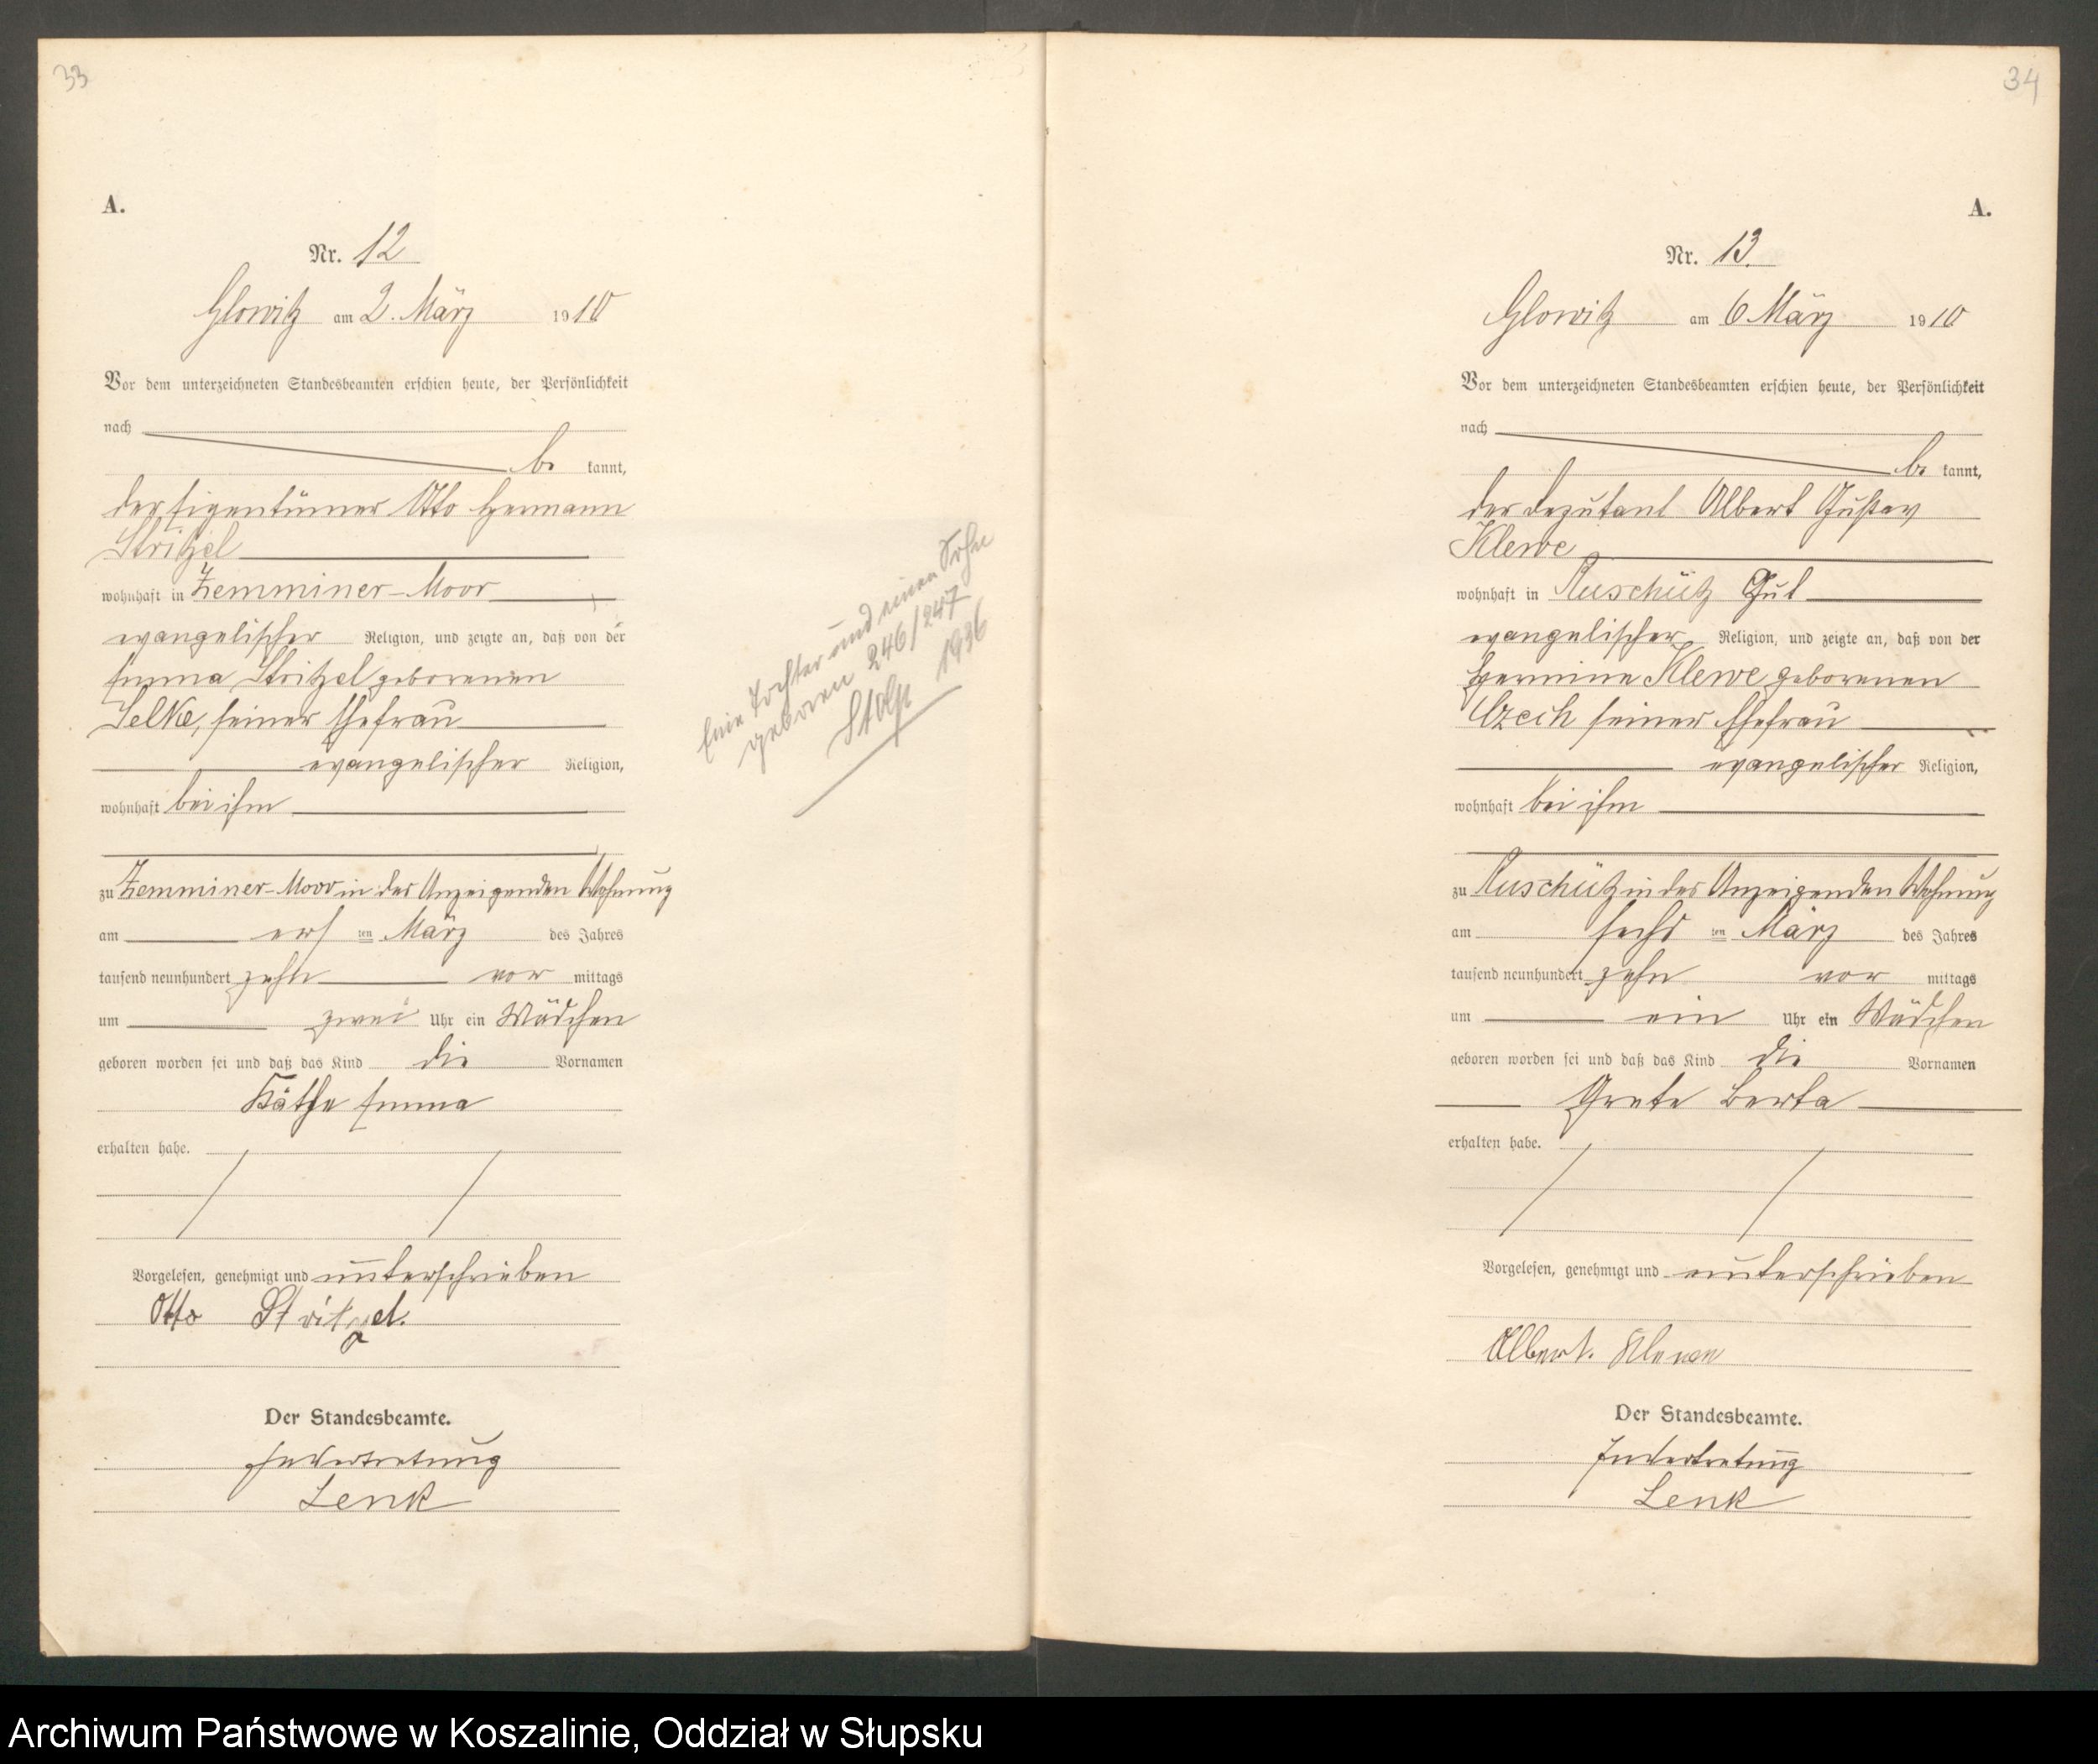 33
A.
Nr. 12
Glowitz am 2. März 1910
Vor dem unterzeichneten Standesbeamten erschien heute, der Persönlichkeit
nach
be kannt,
der Eigentümer Otto Hermann
Stritzel
wohnhaft in Zemminer-Moor
evangelischer Religion, und zeigte an, daß von der
Emma Stritzel geborenen
Selke, seiner Ehefrau
evangelischer Religion,
wohnhaft bei ihm
zu Zemminer-Moor in des Anzeigenden Wohnung
am ers ten März des Jahres
tausend neunhundert zehn vor mittags
um zwei Uhr ein Mädchen
geboren worden sei und daß das Kind die Vornamen
Käthe Emma
erhalten habe.
Vorgelesen, genehmigt und unterschrieben
Otto Stritzel.
Der Standesbeamte.
In Vertretung
Lenk
Eine Tochter und einen Sohn
geboren 246/247
Stolp 1936
34
A.
Nr. 13.
Glowitz am 6 März 1910
Vor dem unterzeichneten Standesbeamten erschien heute, der Persönlichkeit
nach
be kannt,
der Deputant Albert Gustav
Klewe
wohnhaft in Ruschütz Gut
evangelischer Religion, und zeigte an, daß von der
Hermine Klewe geborenen
Czech seiner Ehefrau
evangelischer Religion,
wohnhaft bei ihm
zu Ruschütz in des Anzeigenden Wohnung
am sechs ten März des Jahres
tausend neunhundert zehn vor mittags
um ein Uhr ein Mädchen
geboren worden sei und daß das Kind die Vornamen
Grete Berta
erhalten habe.
Vorgelesen, genehmigt und unterschrieben
Albert.
Der Standesbeamte.
In Vertretung
Lenk
Archiwum Państwowe w Koszalinie, Oddział w Słupsku